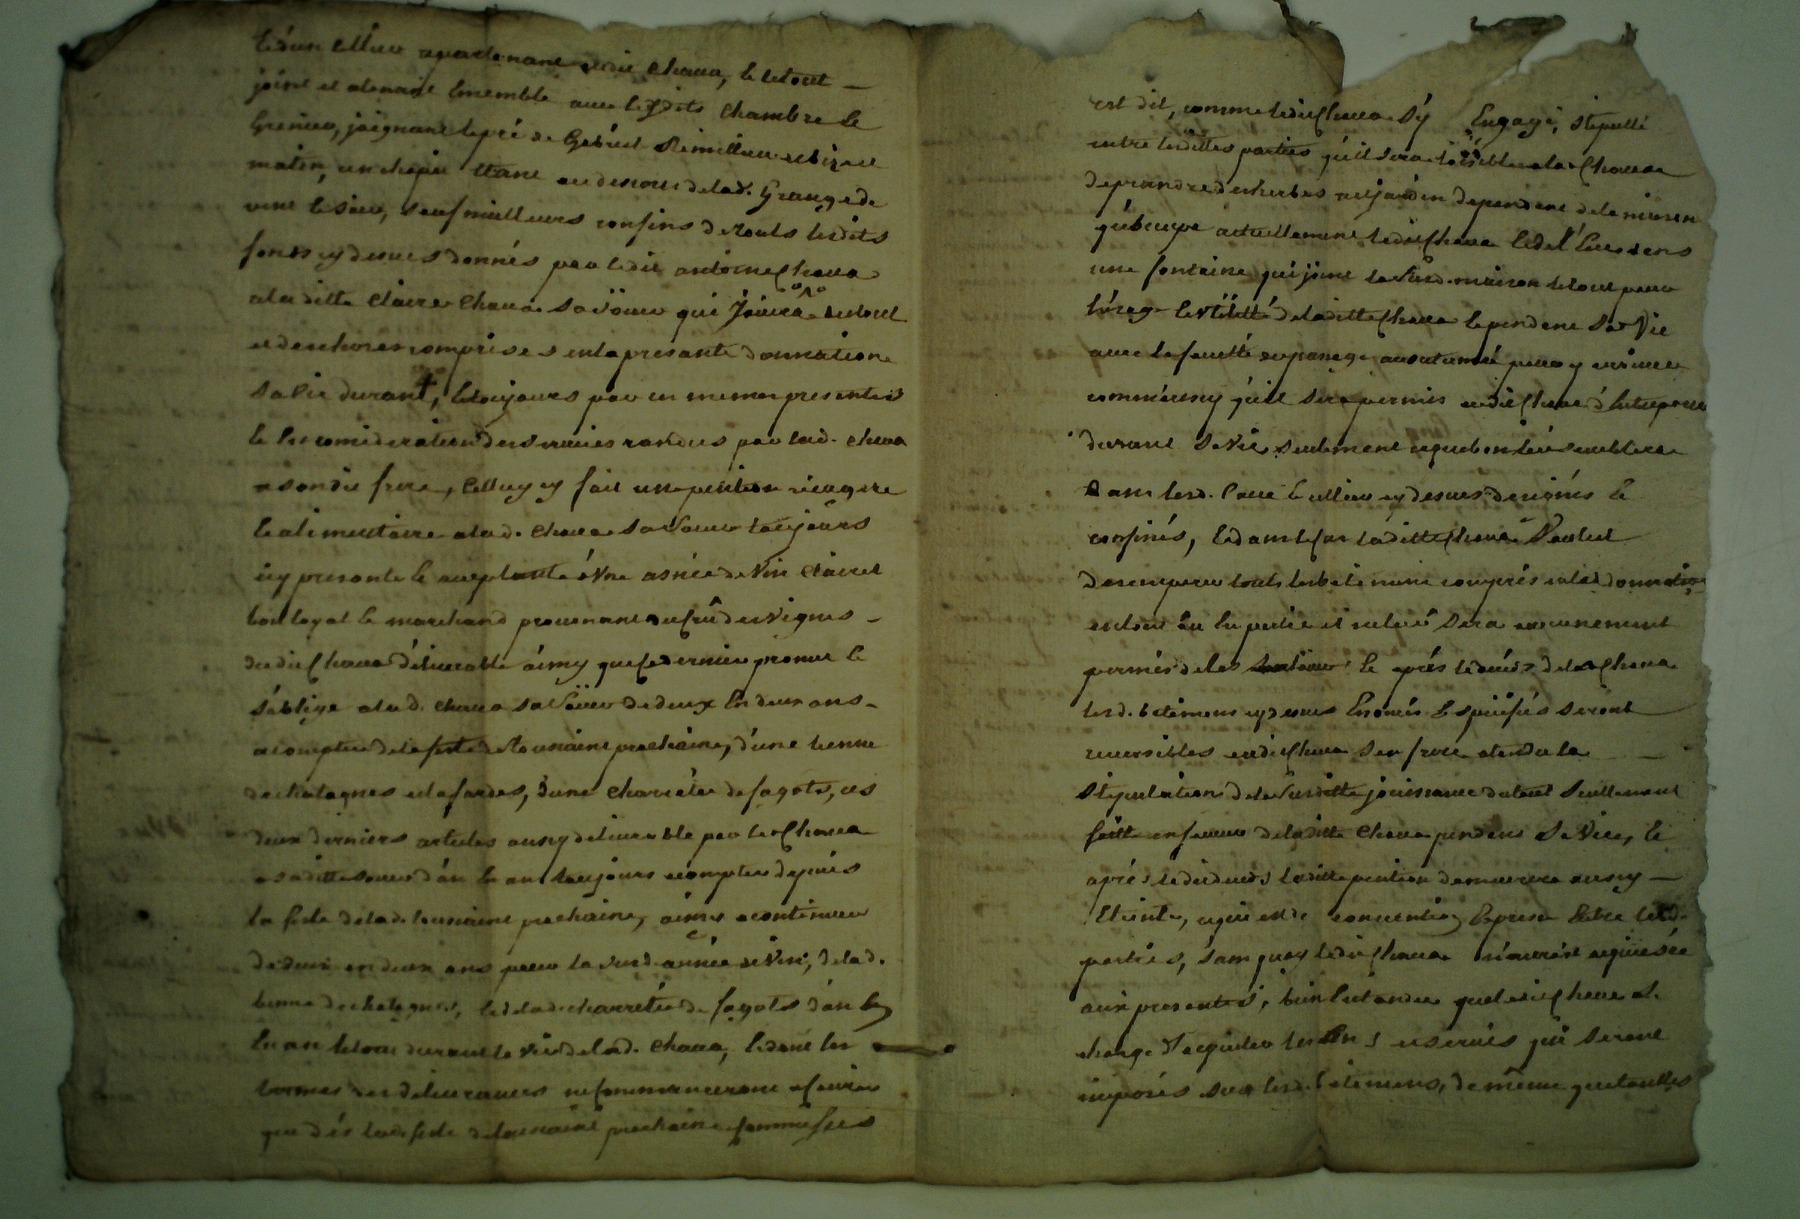 appartenant audit Chaux, le tetout
joint et atenant Ensemble avec lesdits Chambre le
Grenier, joignant le pré de Gabriel
matin, un chapit etant au dessous de lad. Grange de
vent le soir, sauf meilleurs confins de touts lesdits
fonds cy dessus donnés par ledit antoine Chaua
a la ditte Claire Chaua sa soeur qui Jouira du tout
et des choses comprises en la presante donnation
sa vie durant, Et toujours par ces memes presentes
En consideration des services randus par lad. chaua
a son dit frere, Celluy cy fait une pention viagere
Et alimentaire a lad. Chaua sa soeur toujours
icy presante le aceptante d'Une asnée de Vin Clairet
bon loyal le marchand provenant du crû des vignes
dudit Chaua délivrable ainsy que ce dernier promet le
s'oblige a lad. Chaua sa soeur de deux En deux ans
a compter de la feste de toussaint prochaine, d'une benne
de chatagnes, d'une charretée de fagots, ces
deux derniers articles aussy delivrable par led Chaua
a saditte soeur d'an En an toujours a compter depuis
la feste de lad. toussaint prochaine, ainsy a continuer
de deux en deux ans pour la susd. année de Vin, de lad.
benne de chatagnes, et de lad. charretée de fagots d'an En
En an le tout durant la vie de lad. Chaua, et dont les
termes des delivrances ne commanceront a courir
que dés lad. feste de toussaint prochaine comme sus
est dit, comme ledit Chaua s'y Engage, stipullé
entre lesdittes parties qu'il sera loisible a lad Chaua
de prandre des herbes au jardin dependant de la maison
qu'occupe actuellement ledit Chaua Et de l'Eau dans
une fontaine qui joint la susd. maison le tout pour
l'usage le Utilitté de laditte Chaua le pendant sa Vie
avec la faculté du passage accoutumé pour y arriver
comme aussy qu'il sera permis audit Chaua d'Entreposer
durant sa vie seulement ce que bon luy semblera
dans lesd. Cave le cellier cy dessus designés le
confinés, Et dans le cas laditte Chaua Voulut
desemparer touts les batiments compris en lad. donnation
en tout ou En partie il ne luy sera aucunement
permis de les le aprés le décés de lad Chaua
lesd. batimens cy dessus Enoncés Et spécifiés seront
reversibles audit Chaua son frere atendu la
stipulation de la susditte jouissance du tout seullement
faitte en faveur de laditte Chaua pendant sa Vie, le
aprés ledit decés laditte pention demeurera aussy
Eteinte, ce qui est de convention Expresse Entre lesd.
parties, sans quoy ledit Chaua n'auroit aquiescé
aux presentes, bien Entandu que ledit Chaua se
charge d'acquiter les Cens et servis qui seront
imposés sur lesd. batimens, de même que toutes